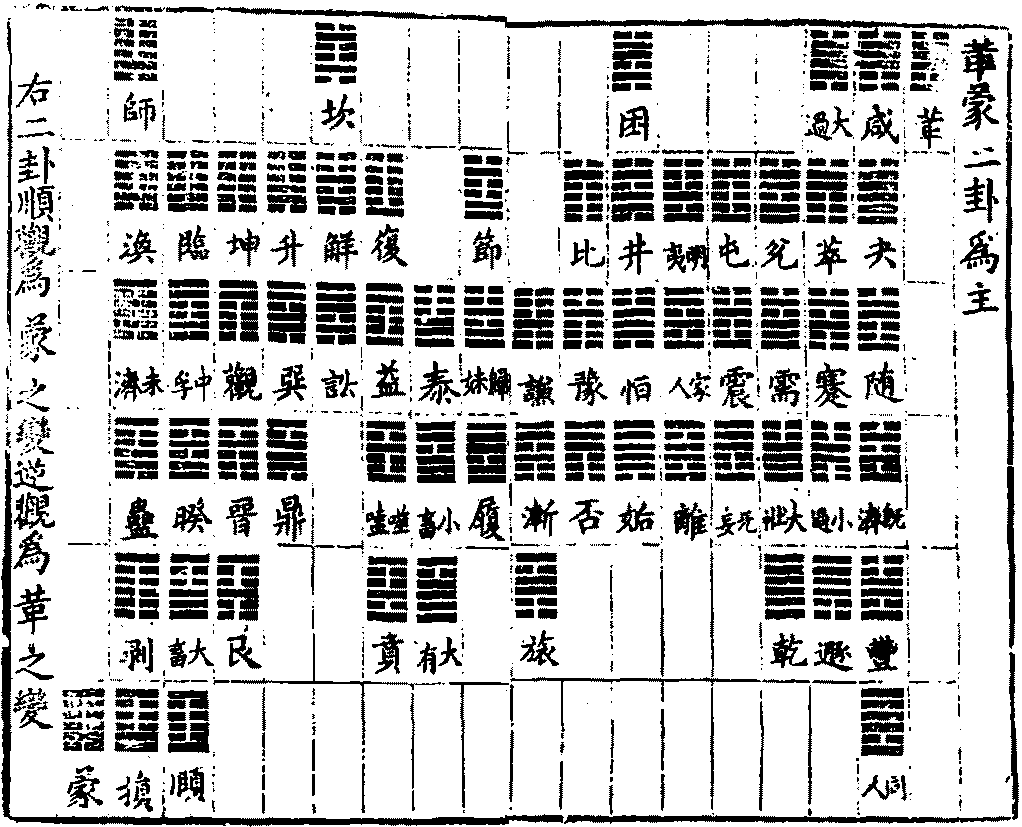 革蒙二卦為主
革
咸 夬 随 既濟 豐 同人
大過 萃 蹇 小過 遯
兌 需 大壯 乾
屯 震 无妄
明夷 家人 離
困 井 恒 姤
比 豫 否
謙 漸 旅
節 歸妹 履
泰 小畜 大有
復 益 噬嗑 賁
坎 解 訟
升 巽 鼎
坤 觀 晉 艮
臨 中孚 睽 大畜 頤
師 渙 未濟 蠱 剝 損
蒙
右二卦順觀為蒙之變逆觀為革之變